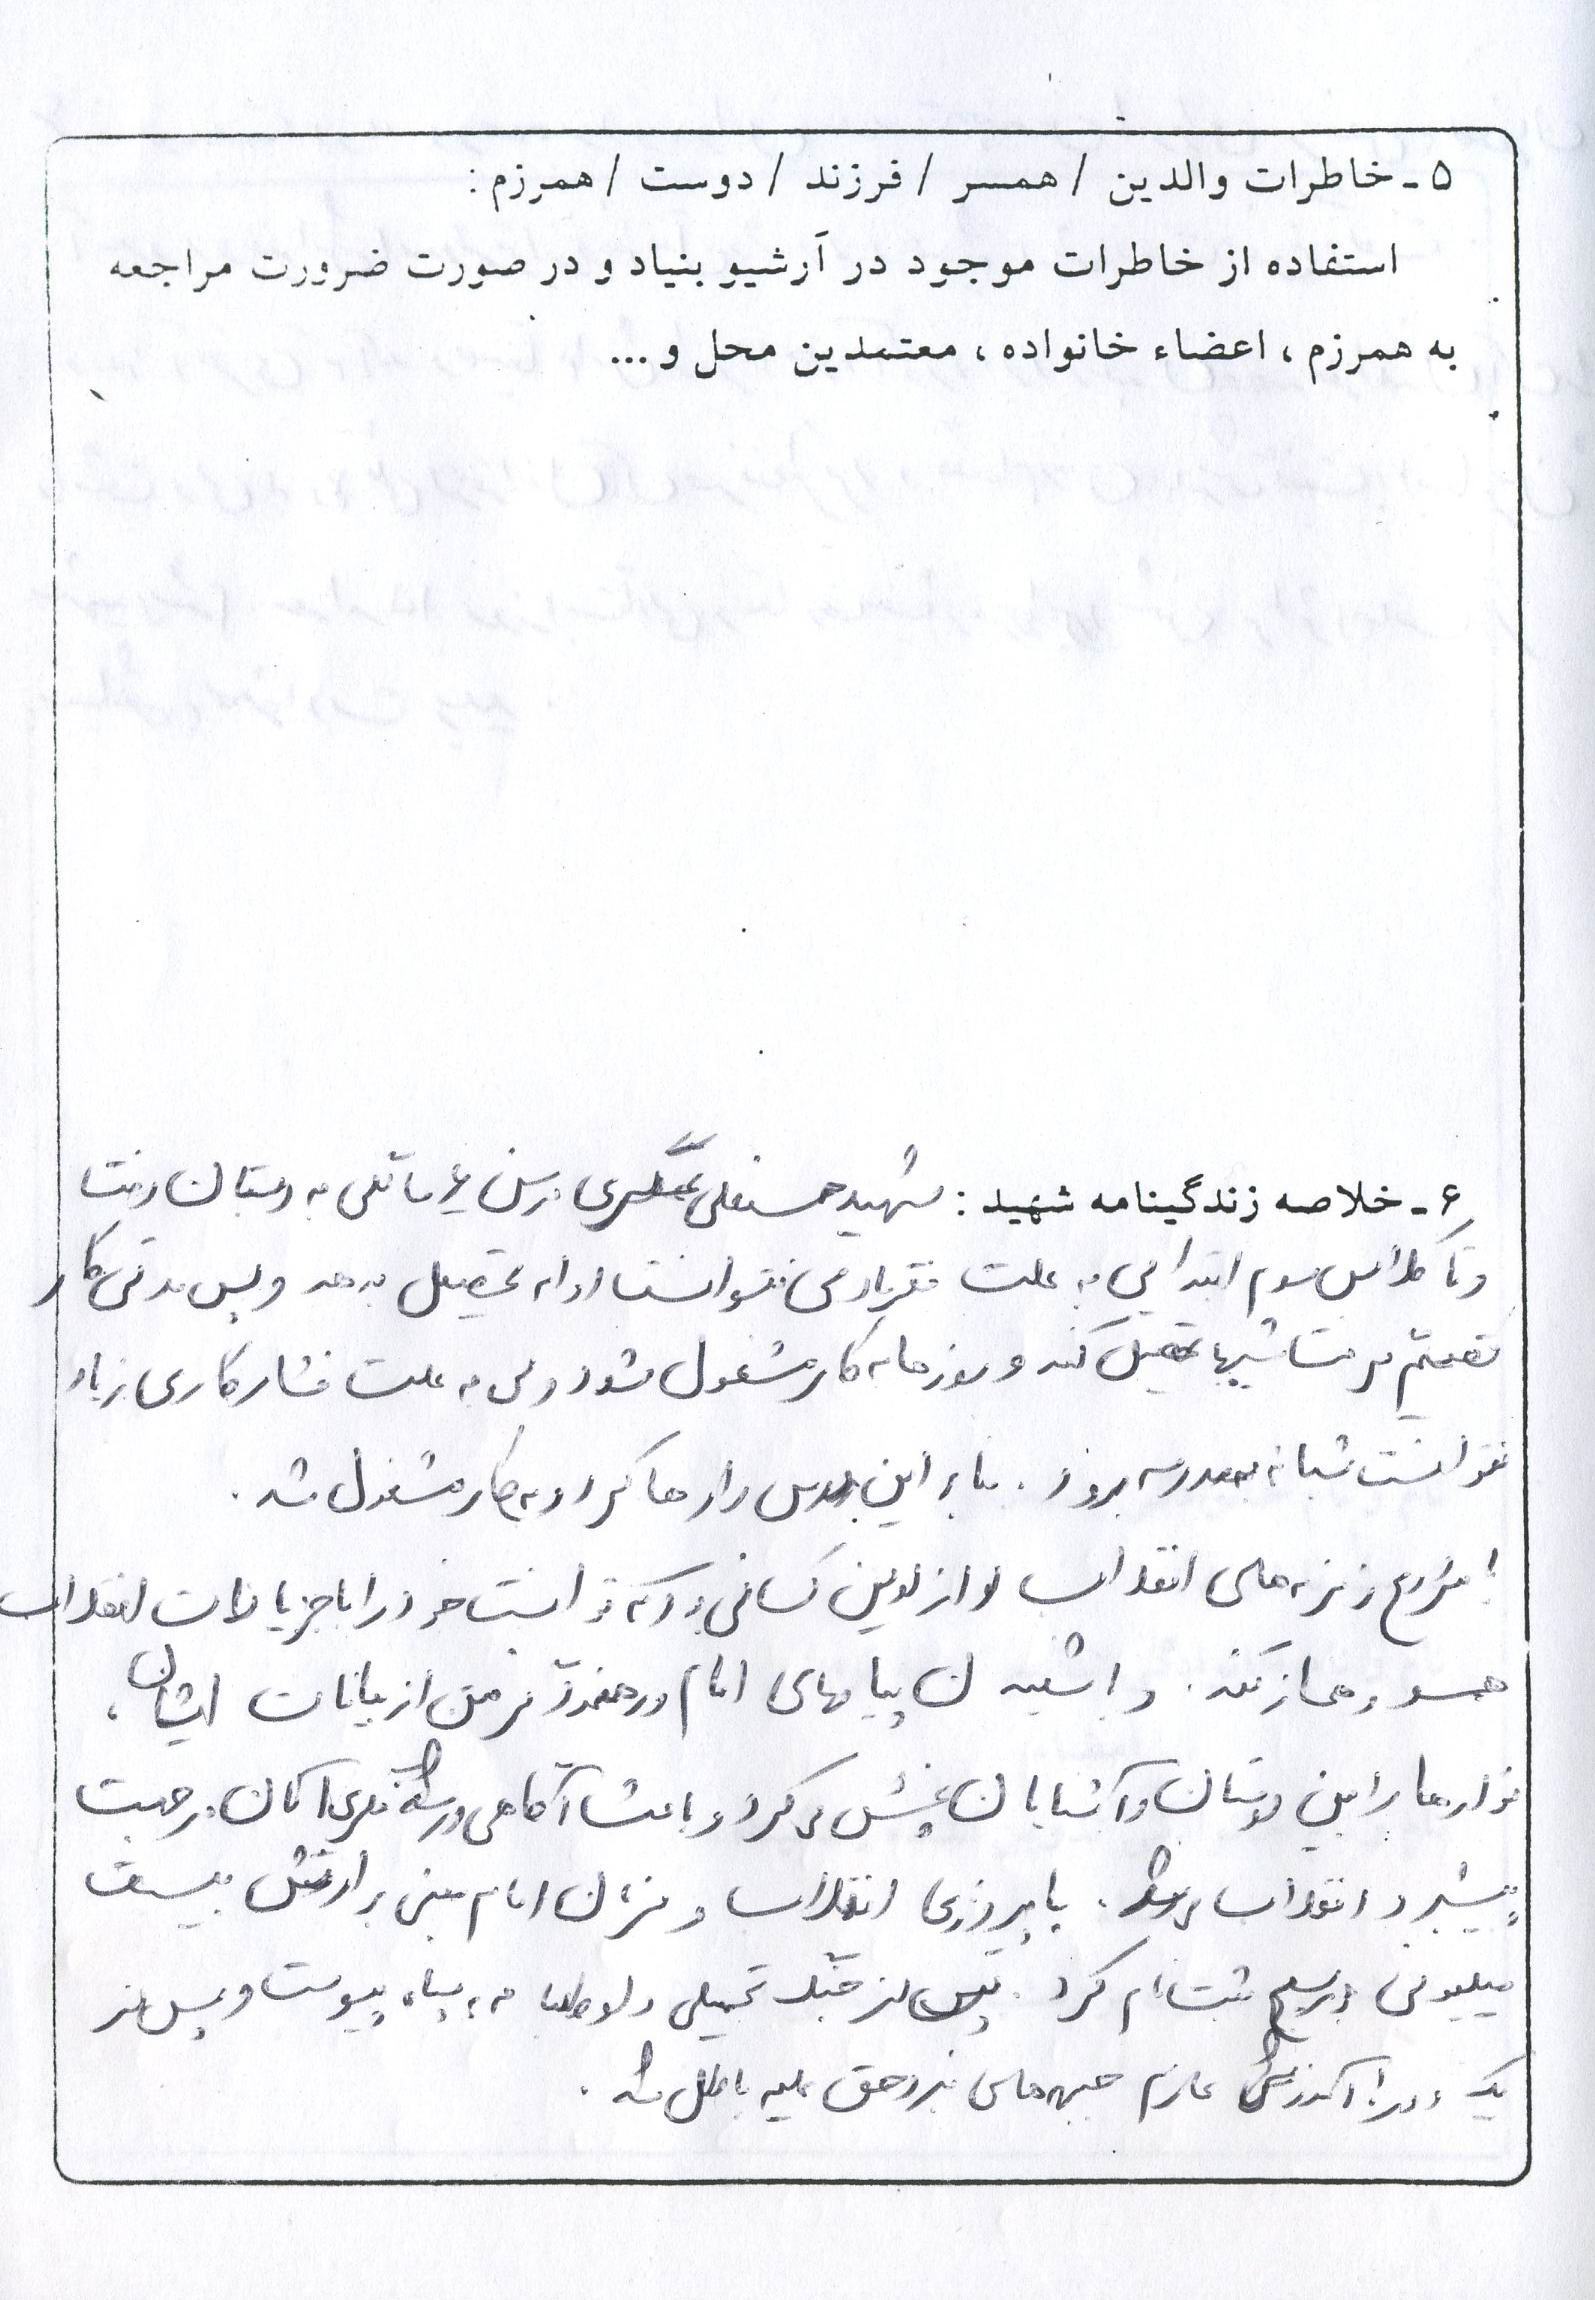 ۵ - خاطرات والدین / همسر / فرزند / دوست / همرزم :
استفاده از خاطرات موجود در آرشیو بنیاد و در صورت ضرورت مراجعه
به همرزم ، اعضاء خانواده ، معتمدین محل و ...
۶ - خلاصه زندگینامه شهید : شهید حسنقلی عسگری در سن ۷ سالگی به دبستان رفت
و تا کلاس سوم ابتدایی به علت فقر مادی نتوانست ادامه تحصیل بدهد و پس مدتی کار
تصمیم گرفت شبها تحصیل کند و روزها به کار مشغول شود ولی به علت فشار کاری زیاد
نتوانست شبانه به مدرسه برود . بنابراین درس را رها کرد و به کار مشغول شد .
با شروع زمزمه های انقلاب او از اولین کسانی بود که توانست خود را با جریانات انقلاب
همسو و همساز کند . و با شنیدن پیامهای امام و در همه نوار گرفتن از بیانات ایشان ،
نوارها را بین دوستان و آشنایان پخش می کرد و باعث آگاهی و رشد فکری آنان در جهت
پیشبرد انقلاب می شد . با پیروزی انقلاب و فرمان امام مبنی بر ارتش بیست
میلیونی در بسیج ثبت نام کرد . پس از جنگ تحمیلی داوطلبانه به سپاه پیوست و پس از
یک دوره آموزشی عازم جبهه های نبرد حق علیه باطل شد .